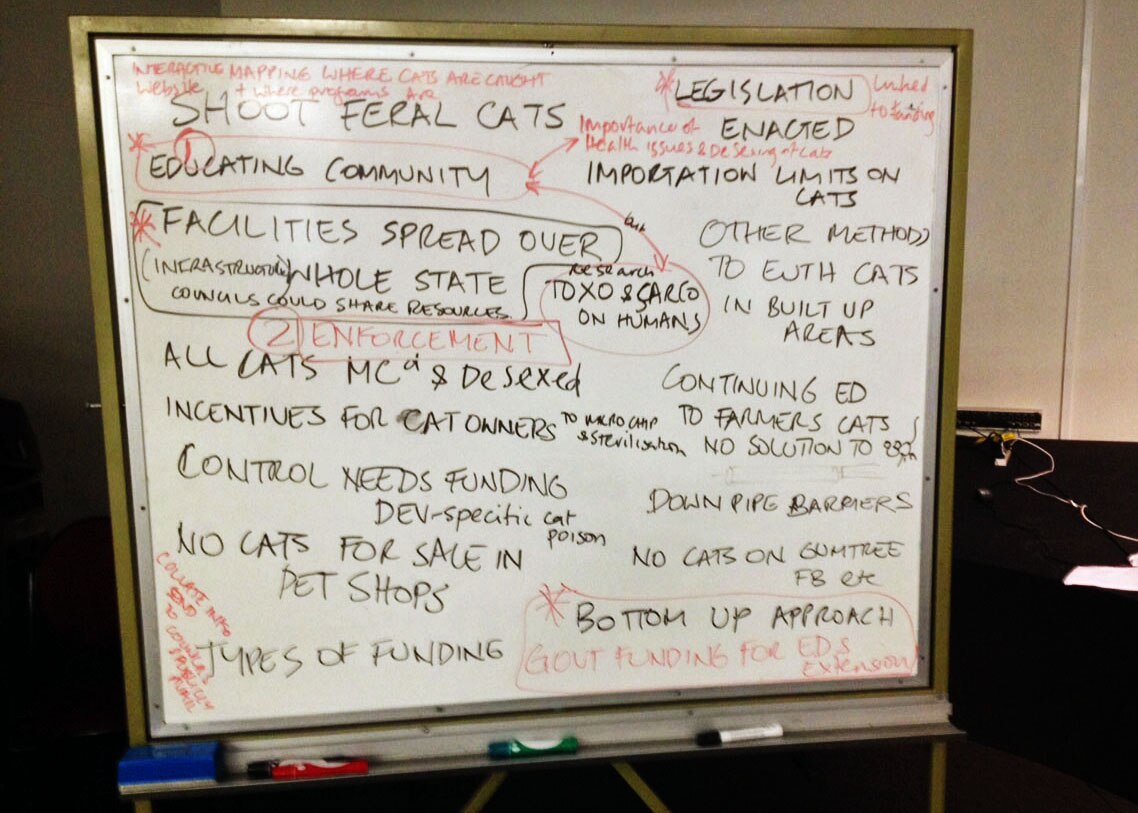 INTERACTIVE MAPPING WHERE CATS ARE CAUGHT
website + where programs are
SHOOT FERAL CATS
* LEGISLATION
linked
to funding
ENACTED
* 1
EDUCATING COMMUNITY
Importance of
Health issues & Desexing of cats
IMPORTATION LIMITS ON
CATS
* FACILITIES SPREAD OVER
(INFRASTRUCTURE) WHOLE STATE
COUNCILS COULD SHARE RESOURCES.
research
TOXO & SARCO
ON HUMANS
OTHER METHODS
TO EUTH CATS
IN BUILT UP
AREAS
2 ENFORCEMENT
ALL CATS MCd & Desexed
INCENTIVES FOR CAT OWNERS
TO MICROCHIP
& sterilisation
CONTINUING ED
TO FARMERS CATS
NO SOLUTION TO
CONTROL NEEDS FUNDING
DEV-specific cat
poison
DOWN PIPE BARRIERS
NO CATS FOR SALE IN
PET SHOPS
NO CATS ON GUMTREE
FB etc
TYPES OF FUNDING
* BOTTOM UP APPROACH
GOVT FUNDING FOR ED &
EXTENSION
COLLATE INFO
SEND
TO COUNCILS